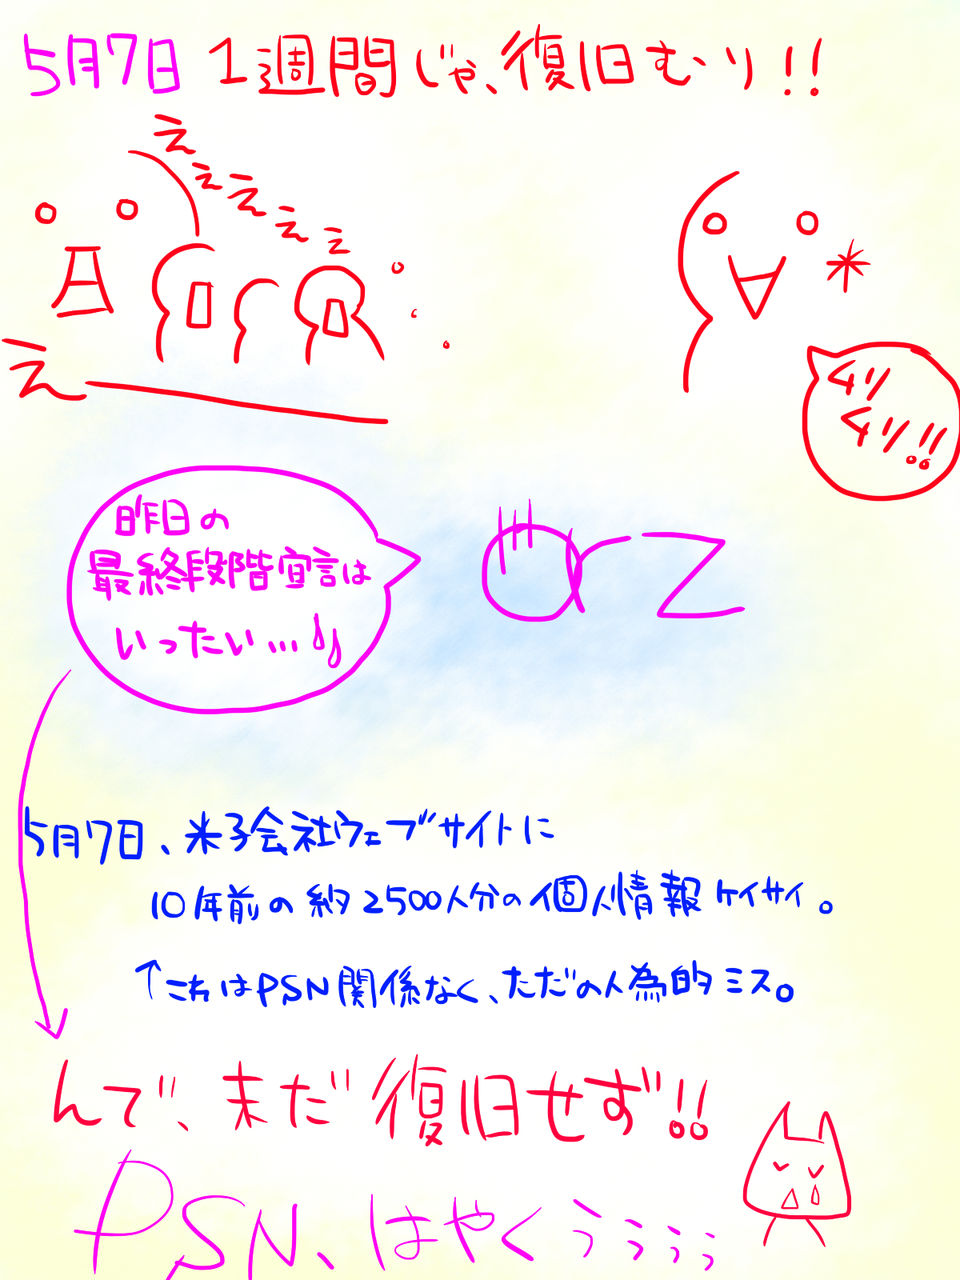 5月7日 1週間じゃ、復旧むり!!
えぇえぇぇ
え——
ムリ
ムリ!!
昨日の
最終段階宣言は
いったい…
orz
5月7日、米子会社ウェブサイトに
10年前の約2500人分の個人情報ケイサイ。
↑これはPSN関係なく、ただの人為的ミス。
んで、未だ復旧せず!!
PSN、はやくぅぅぅぅ